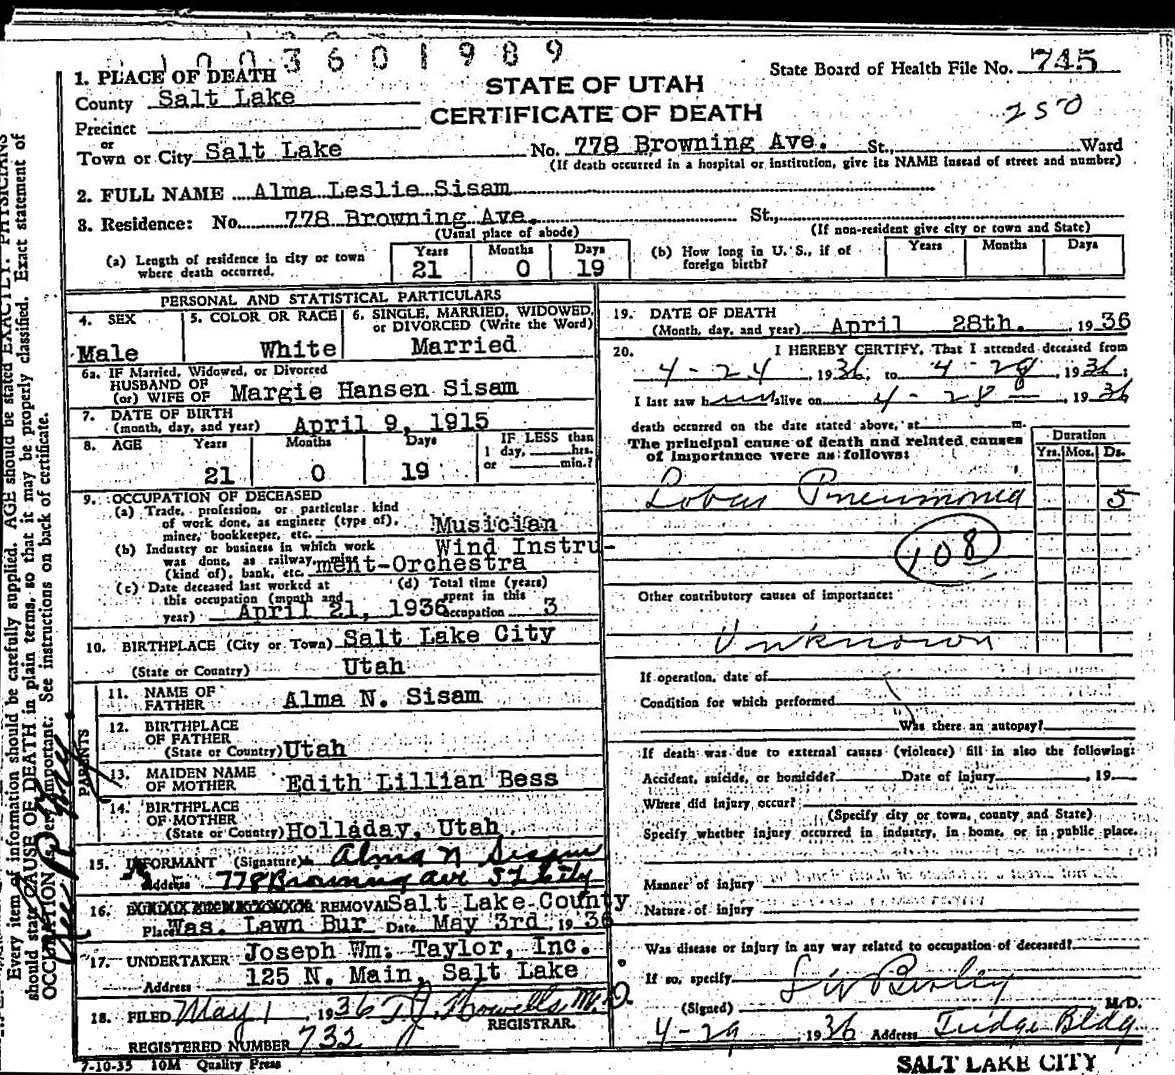 1003601989
1. PLACE OF DEATH
County Salt Lake
Precinct
or
Town or City Salt Lake
STATE OF UTAH
CERTIFICATE OF DEATH
State Board of Health File No. 745
250
No. 778 Browning Ave. St., Ward
(If death occurred in a hospital or institution, give its NAME instead of street and number)
2. FULL NAME Alma Leslie Sisam
3. Residence: No. 778 Browning Ave. St.,
(Usual place of abode) (If non-resident give city or town and State)
(a) Length of residence in city or town where death occurred. Years 21 Months 0 Days 19
(b) How long in U. S., if of foreign birth? Years Months Days
PERSONAL AND STATISTICAL PARTICULARS
4. SEX 5. COLOR OR RACE 6. SINGLE, MARRIED, WIDOWED, or DIVORCED (Write the Word)
Male White Married
6a. IF Married, Widowed, or Divorced
HUSBAND OF
(or) WIFE OF Margie Hansen Sisam
7. DATE OF BIRTH
(month, day, and year) April 9, 1915
8. AGE Years Months Days IF LESS than
1 day, hrs.
or min.?
21 0 19
9. OCCUPATION OF DECEASED
(a) Trade, profession, or particular kind
of work done, as engineer (type of),
miner, bookkeeper, etc. Musician
(b) Industry or business in which work Wind Instru-
was done, as railway, mine
(kind of), bank, etc. ment-Orchestra
(c) Date deceased last worked at
this occupation (month and
year) April 21, 1936
(d) Total time (years)
spent in this
occupation 3
10. BIRTHPLACE (City or Town) Salt Lake City
(State or Country) Utah
PARENTS
11. NAME OF
FATHER Alma N. Sisam
12. BIRTHPLACE
OF FATHER
(State or Country) Utah
13. MAIDEN NAME
OF MOTHER Edith Lillian Bess
14. BIRTHPLACE
OF MOTHER
(State or Country) Holladay, Utah
15. INFORMANT (Signature) Alma N Sisam
Address 778 Browning Ave
16. REMOVAL Salt Lake County
Place Was. Lawn Bur Date May 3rd, 1936
17. UNDERTAKER Joseph Wm. Taylor, Inc.
Address 125 N. Main, Salt Lake
18. FILED May 1, 1936 T.J. Howells M.D.
REGISTRAR.
REGISTERED NUMBER 732
7-10-35 10M Quality Press
19. DATE OF DEATH
(Month, day, and year) April 28th. , 1936
20. I HEREBY CERTIFY, That I attended deceased from
4-24, 1936, to 4-28, 1936;
I last saw h alive on 4-28, 1936
death occurred on the date stated above, at m.
The principal cause of death and related causes
of importance were as follows:
Duration
Yrs. Mos. Ds.
Lobar Pneumonia 5
108
Other contributory causes of importance:
Unknown
If operation, date of
Condition for which performed
Was there an autopsy?
If death was due to external causes (violence) fill in also the following:
Accident, suicide, or homicide? Date of injury , 19
Where did injury occur?
(Specify city or town, county and State)
Specify whether injury occurred in industry, in home, or in public place.
Manner of injury
Nature of injury
Was disease or injury in any way related to occupation of deceased?
If so, specify
(Signed) M.D.
4-29 1936 Address Judge Bldg
SALT LAKE CITY
Every item of information should be carefully supplied. AGE should be stated EXACTLY. PHYSICIANS
should state CAUSE OF DEATH in plain terms, so that it may be properly classified. Exact statement of
OCCUPATION is very important. See instructions on back of certificate.